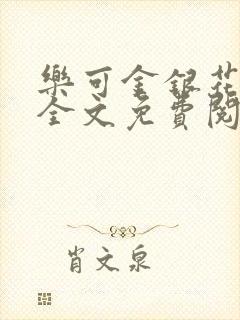 樂可金銀花
全文免費閱
肖文泉